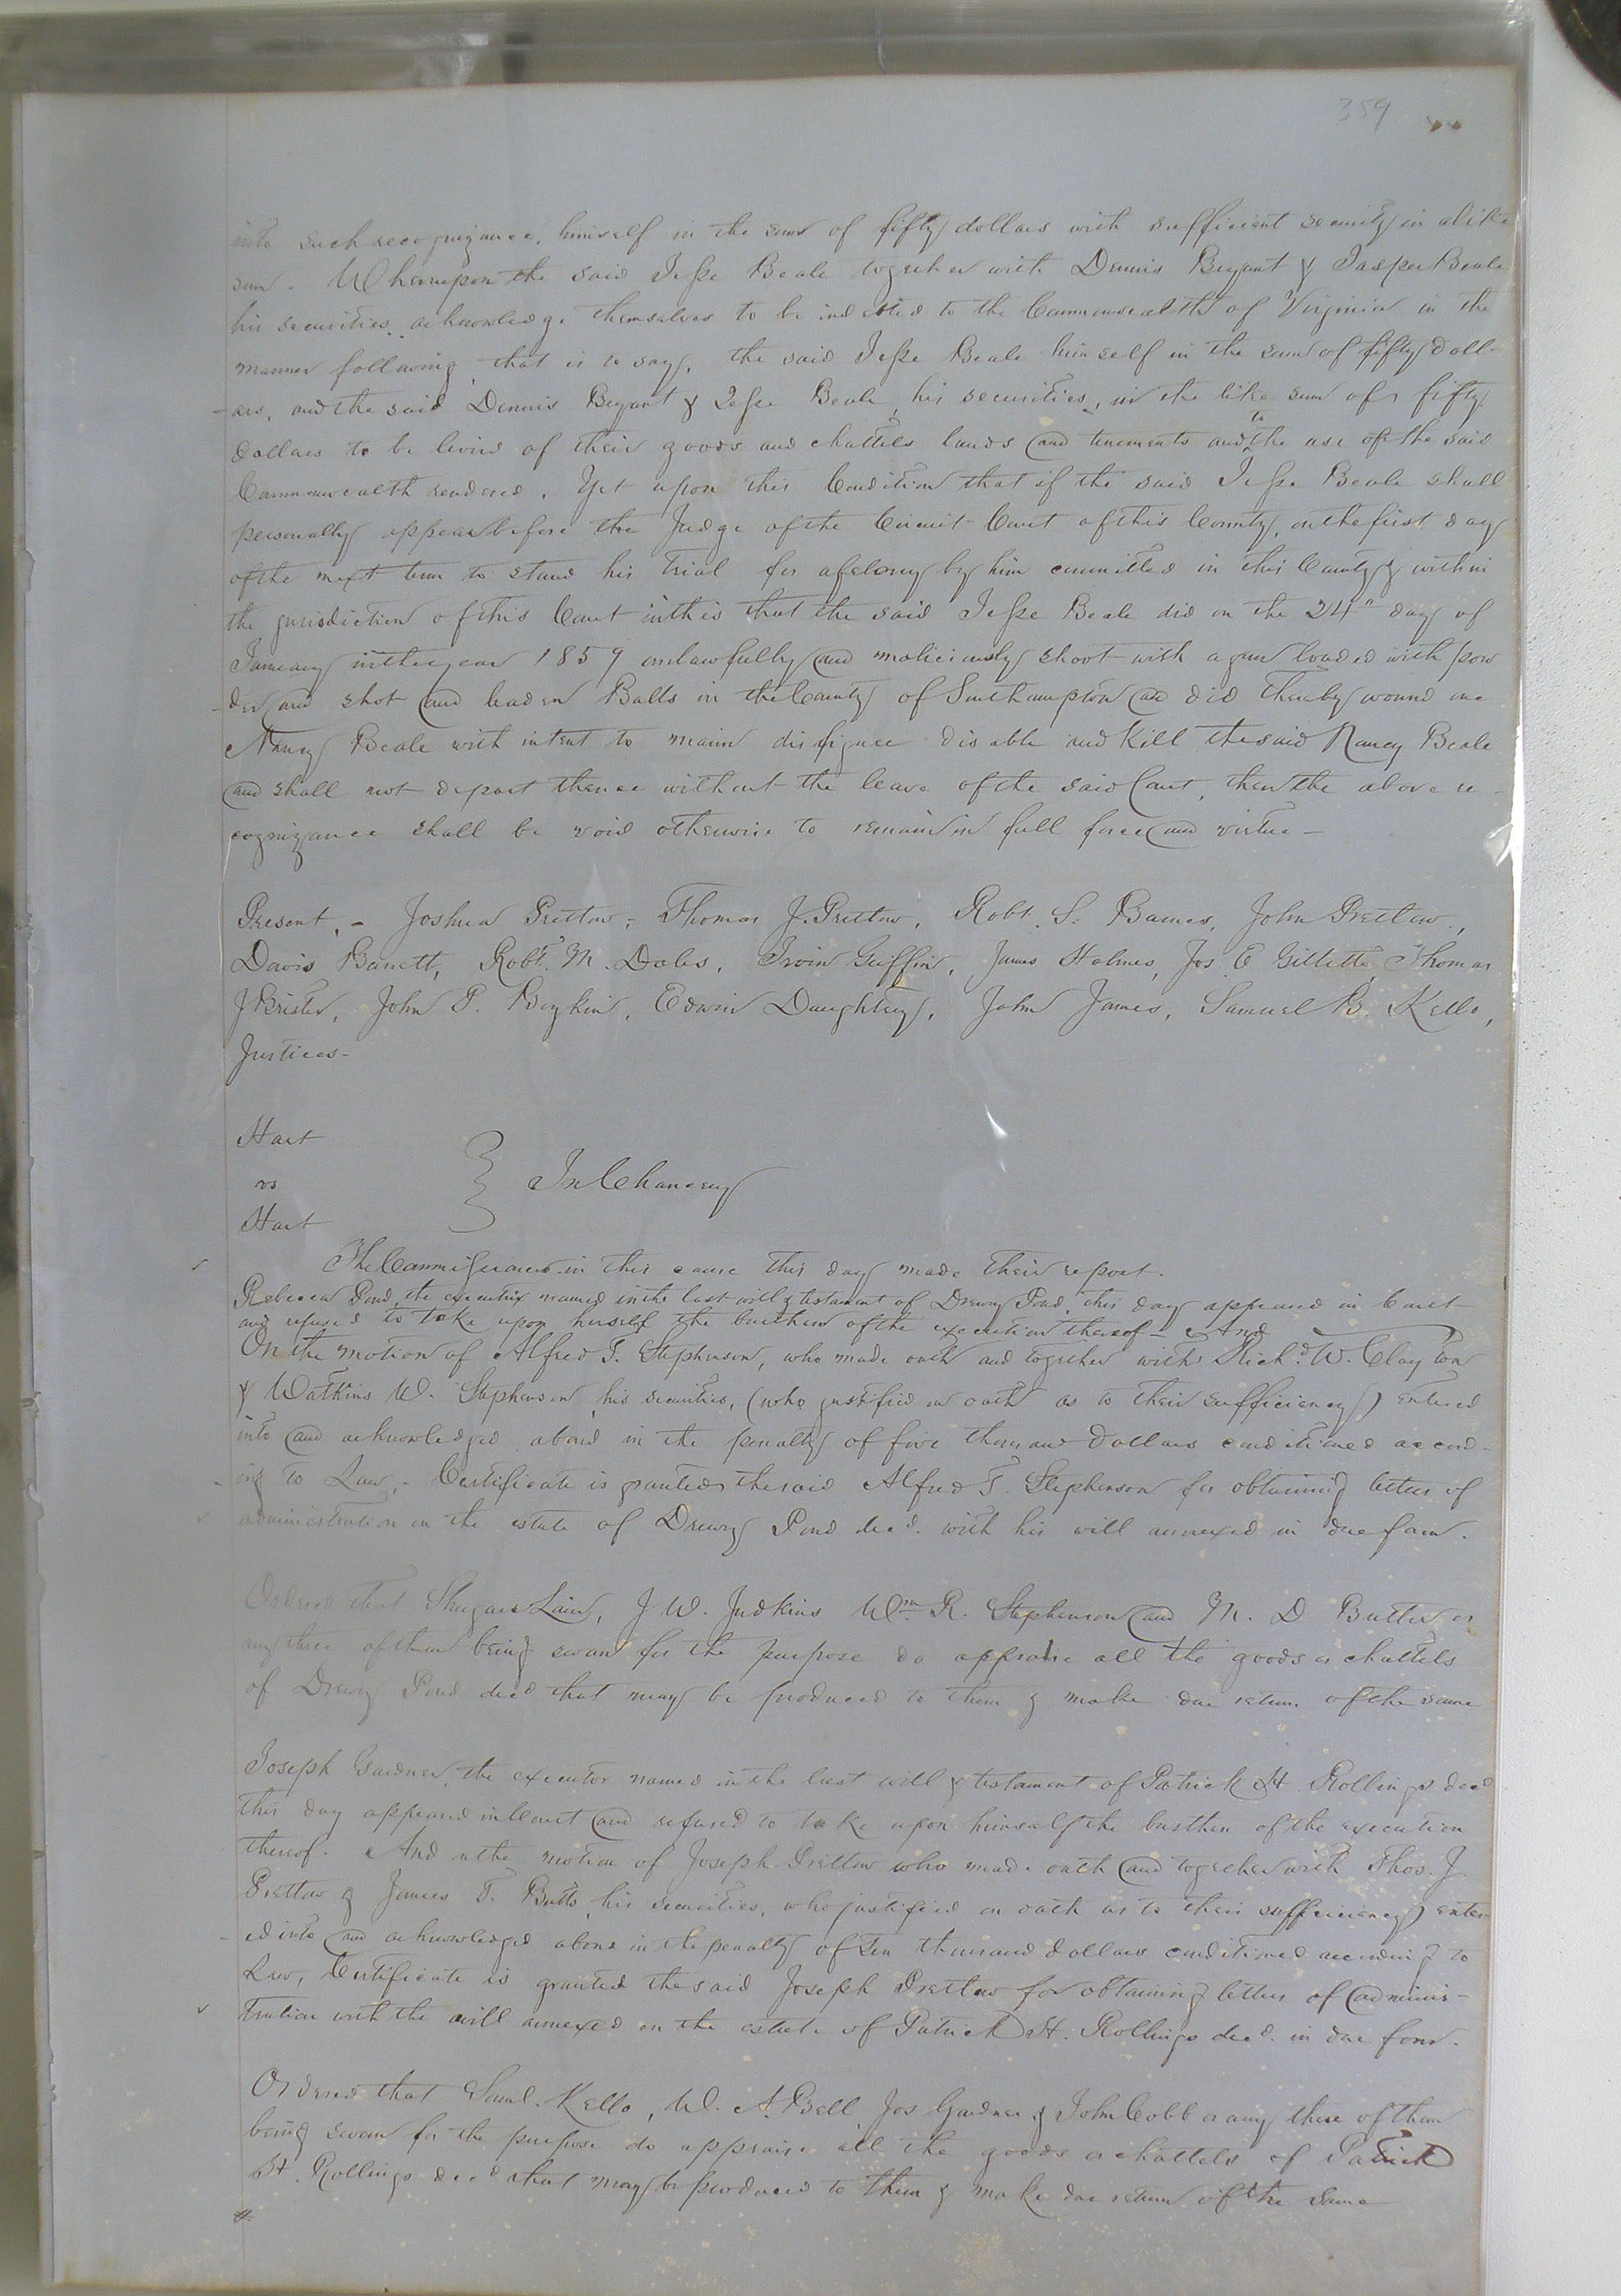 359
into such recognizance, himself in the sum of fifty dollars with sufficient security in alike
sum. Whereupon the said Jesse Beale together with Dennis Bryant & Jasper Beale
his securities acknowledge themselves to be indebted to the Commonwealth of Virginia in the
manner following, that is to say, the said Jesse Beale himself in the sum of fifty doll-
-ars, and the said Dennis Bryant & Jesse Beale, his securities, in the like sum of fifty
dollars to be levied of their goods and chattels lands and tenements and to the use of the said
Commonwealth rendered. Yet upon this Condition that if the said Jesse Beale shall
personally appear before the Judge of the Circuit Court of this County, on the first day
of the next term to stand his trial for a felony by him committed in this County & within
the jurisdiction of this Court in this that the said Jesse Beale did on the 24th day of
January in the year 1859 unlawfully and maliciously shoot with a gun loaded with pow
-der and shot and leaden Balls in the County of Southampton and did thereby wound one
Nancy Beale with intent to maim disfigure disable and Kill the said Nancy Beale
and shall not depart thence without the leave of the said Court, then the above re-
cognizance shall be void otherwise to remain in full force and virtue -
Present, - Joshua Pretlow, Thomas J. Pretlow, Robt. S. Barnes, John Pretlow,
Davis Barrett, Robt. M. Doles, Irvin Griffin, James Holmes, Jos. E Gillette Thomas
J Brister, John P. Boykin, Edwin Daughtrey, John James, Samuel B. Kello,
Justices-
Hart
vs } In Chancery
Hart
The Commissioners in this cause this day made their report.
Rebecca Pond, the executrix named in the last will & testament of Drewry Pond, this day appeared in Court
and refused to take upon herself the burthen of the execution thereof - And
On the motion of Alfred T. Stephenson, who made oath and together with Richd. W. Clayton
& Watkins W. Stephenson, his securities, (who justified on oath as to their sufficiency) entered
into and acknowledged a bond in the penalty of five thousand Dollars conditioned accord-
-ing to Law, - Certificate is granted the said Alfred T. Stephenson for obtaining letters of
administration on the estate of Drewry Pond decd. with his will annexed in due form.
Ordered that Shugars Lain, J W. Judkins Wm R. Stephenson and M. D Butler or
any three of them being sworn for the purpose do appraise all the goods & chattels
of Drewry Pond decd that may be produced to them & make due return of the same
Joseph Gardner, the executor named in the last will & testament of Patrick H. Rollings decd
this day appeared in Court and refused to take upon himself the burthen of the execution
thereof. And on the motion of Joseph Pretlow who made oath and together with Thos. J.
Pretlow & James T. Butts his securities, who justified on oath as to their sufficiency) enter
-ed into and acknowledged a bond in the penalty of Ten thousand dollars conditioned according to
Law, Certificate is granted the said Joseph Pretlow for obtaining letters of adminis-
tration with the will annexed on the estate of Patrick H. Rollings decd. in due form.
Ordered that Saml. Kello, W. A. Bell, Jos Gardner & John Cobb or any three of them
being sworn for the purpose do appraise all the goods & chattels of Patrick
H. Rollings decd that may be produced to them & make due return of the same